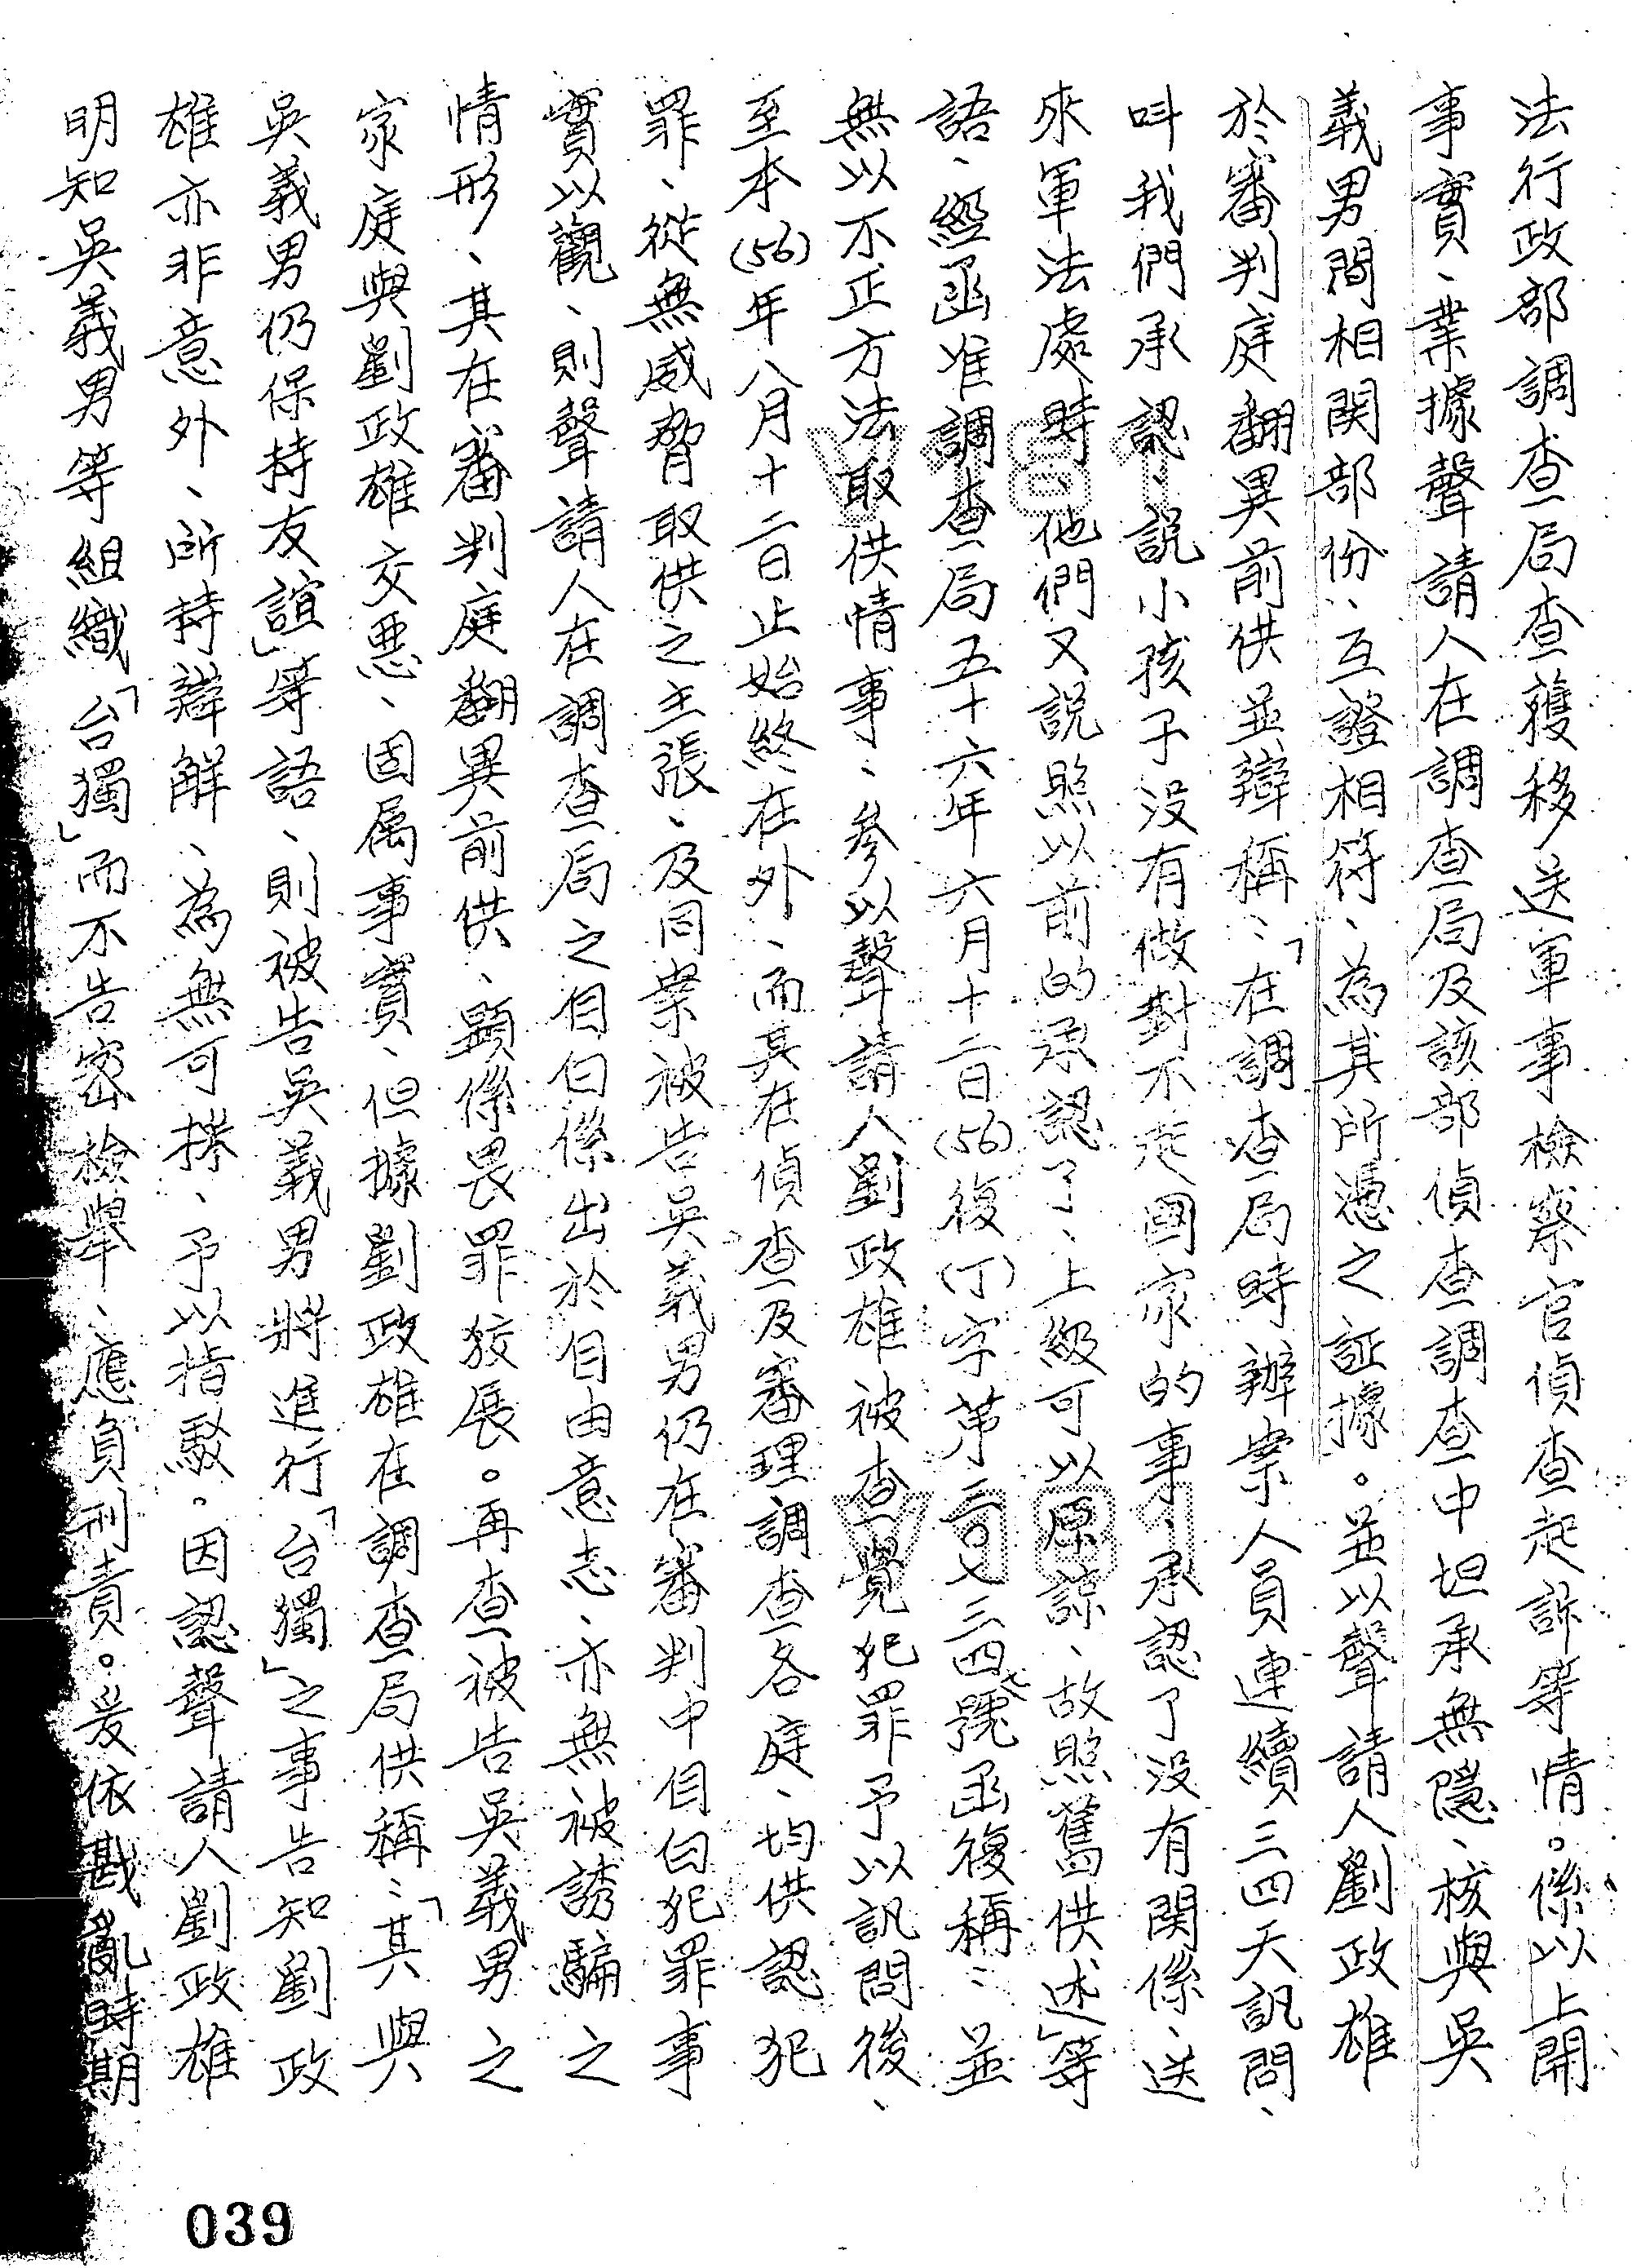 法行政部調查局查獲移送軍事檢察官偵查起訴等情。係以上開
事實、業據聲請人在調查局及該部偵查調查中坦承無隱、核與吳
義男間相関部份:互證相符、為其所憑之証據。並以聲請人劉政雄
於審判庭翻異前供並辯稱:「在調查局時辦案人員連續三四天訊問、
叫我們承認、說小孩子没有做對不起國家的事、承認了没有関係、送
來軍法處時、他們又説照以前的承認了、上級可以原諒、故照舊供述」等
語、經函准調查局五十六年六月十二日(56)復(丁)字第三四號函復稱:並
無以不正方法取供情事、參以聲請人劉政雄被查覺犯罪予以訊問後、
至本(56)年八月十二日止始終在外、而其在偵查及審理調查各庭、均供認犯
罪、從無威脅取供之主張、及同案被告吳義男仍在審判中自白犯罪事
實以觀、則聲請人在調查局之自白係出於自由意志、亦無被誘騙之
情形、其在審判庭翻異前供、顯係畏罪狡展。再查被告吳義男之
家庭與劉政雄交悪、固属事實、但據劉政雄在調查局供稱:「其與
吳義男仍保持友誼」等語、則被告吳義男將進行「台獨」之事告知劉政
雄亦非意外、所持辯解、為無可採、予以指駁。因認聲請人劉政雄
明知吳義男等組織「台獨」而不告密檢舉、應負刑責。爰依戡亂時期
039
V181
V181